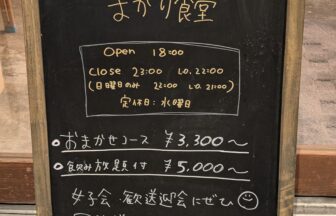 まかり食堂
Open 18:00
Close 23:00 L.O. 22:00
(日曜日のみ 22:00 L.O. 21:00)
定休日:水曜日
●おまかせコース ¥3,300〜
●飲み放題付 ¥5,000〜
女子会・歓送迎会にぜひ☺